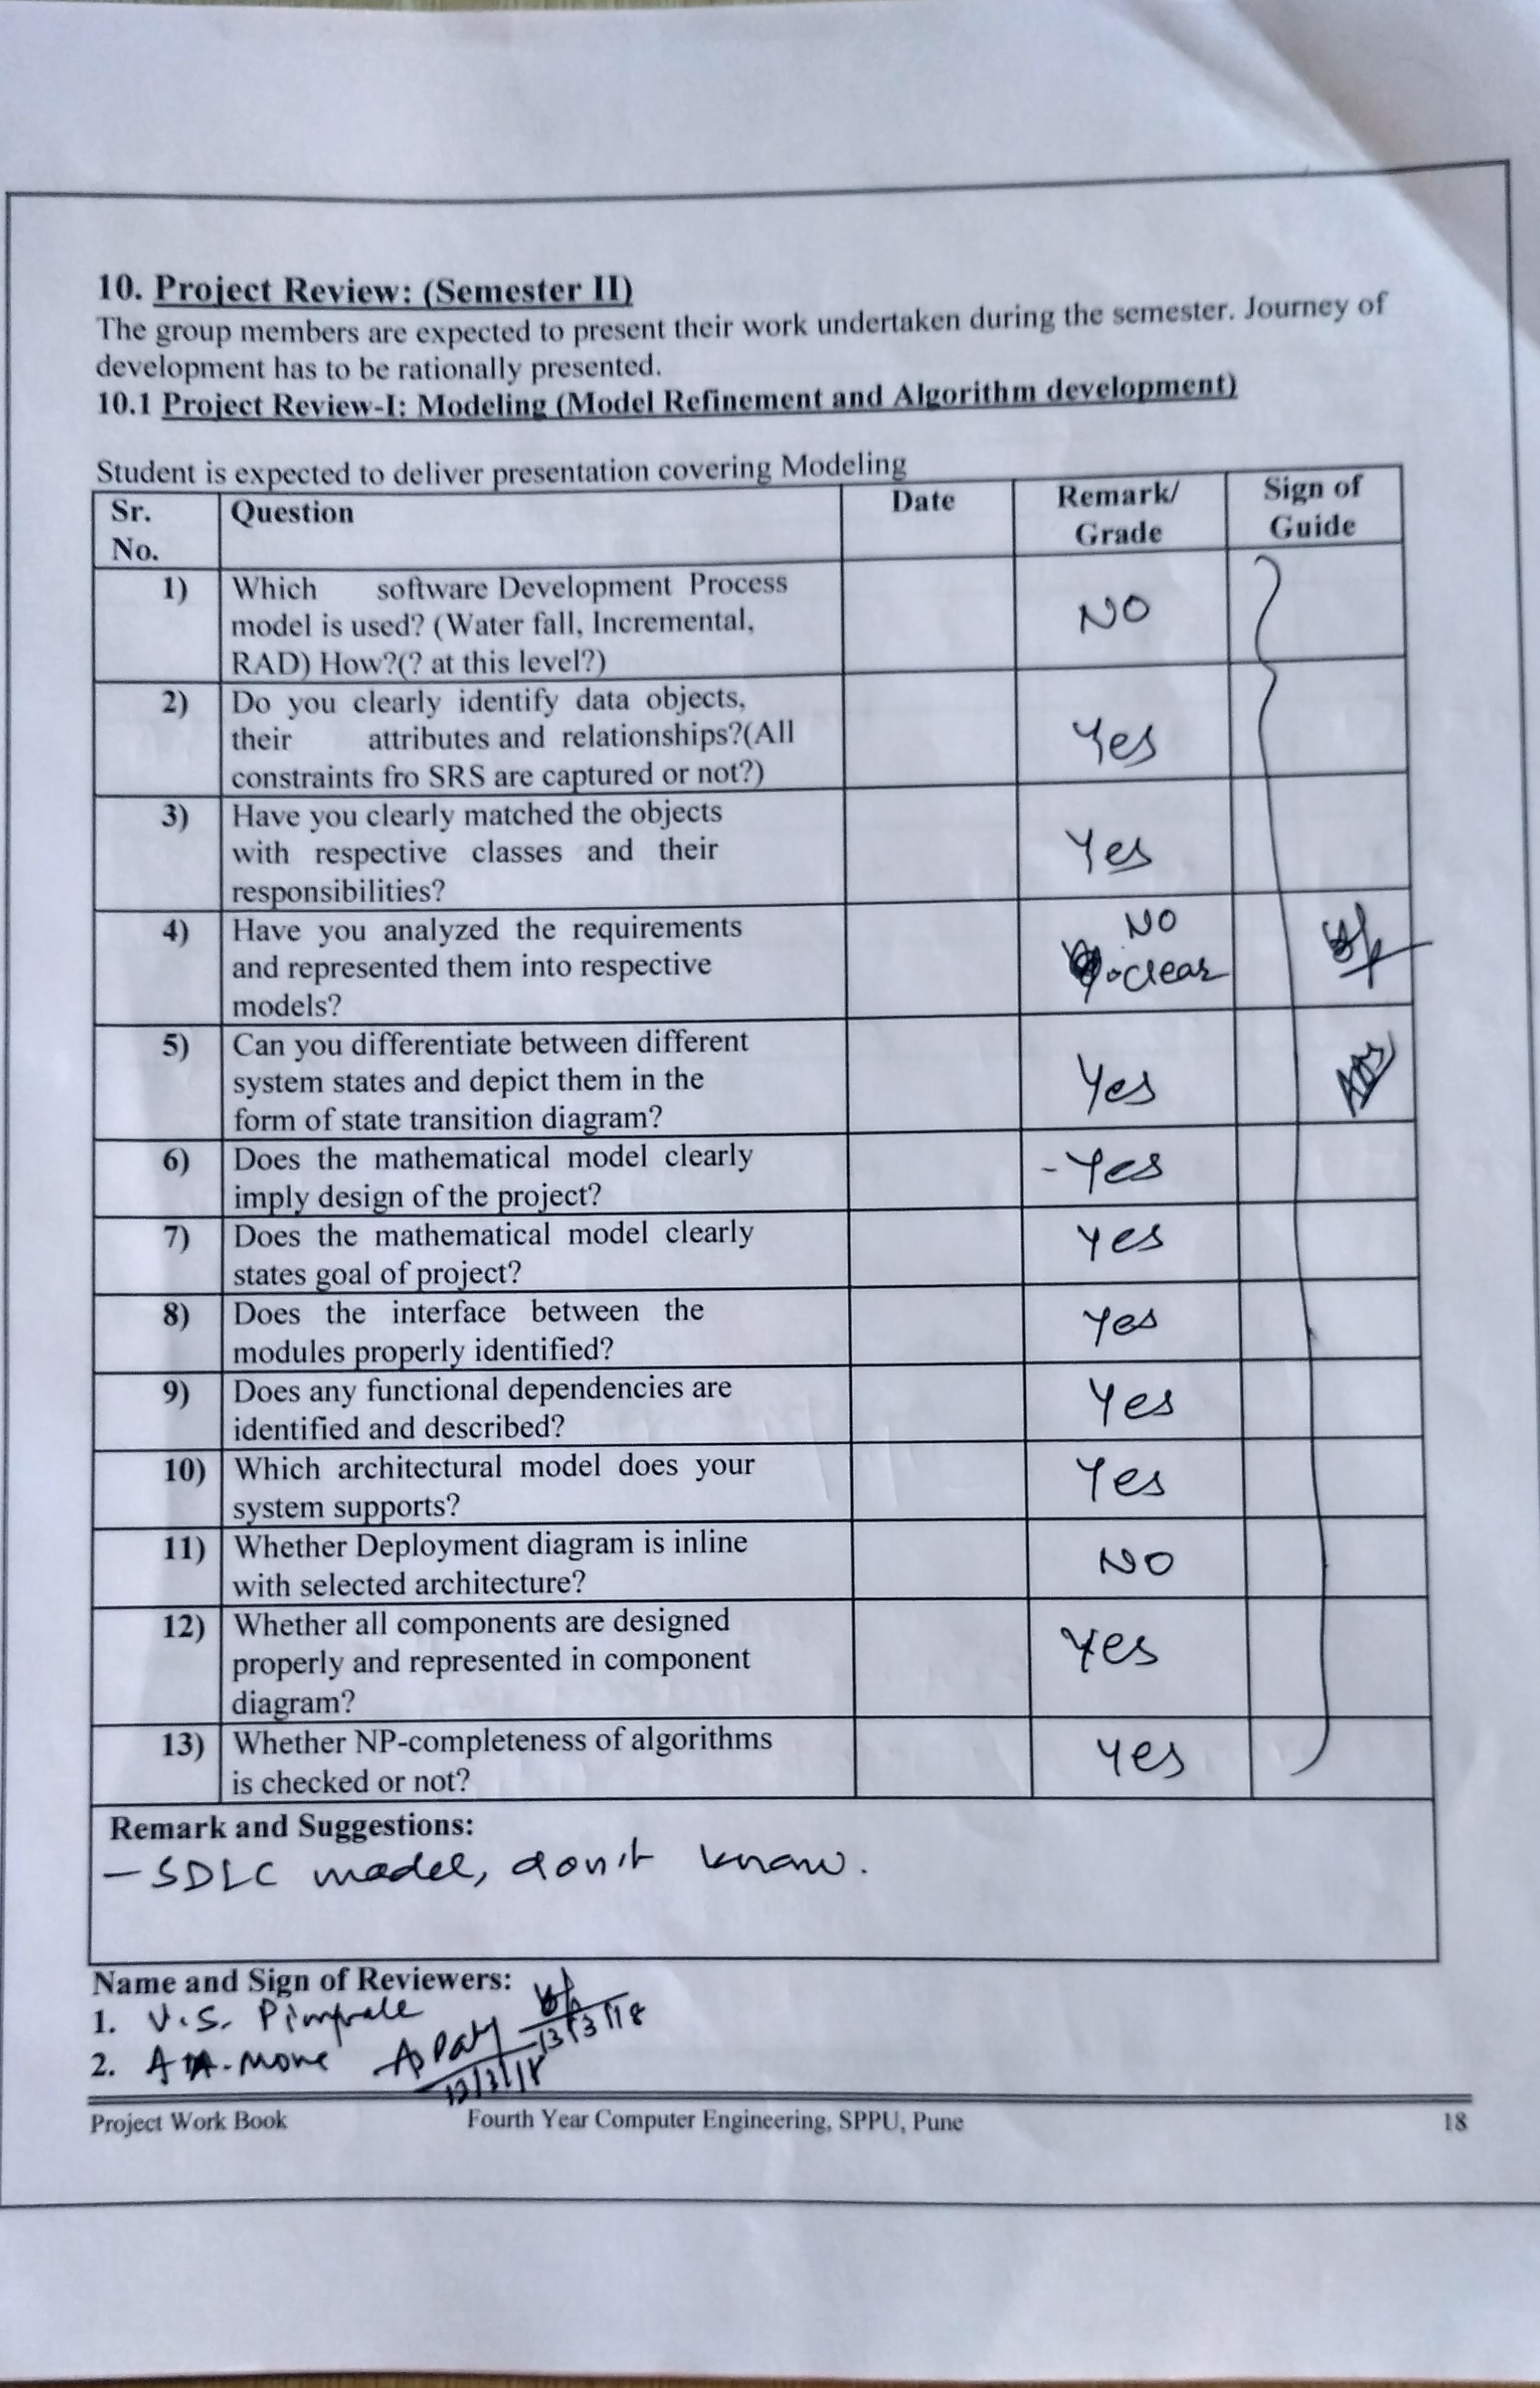 10. Project Review: (Semester II)
The group members are expected to present their work undertaken during the semester. Journey of
development has to be rationally presented.
10.1 Project Review-I: Modeling (Model Refinement and Algorithm development)
Student is expected to deliver presentation covering Modeling
Sr. No. Question Date Remark/ Grade Sign of Guide
1) Which software Development Process NO
model is used? (Water fall, Incremental,
RAD) How?(? at this level?)
2) Do you clearly identify data objects,
their attributes and relationships?(All Yes
constraints fro SRS are captured or not?)
3) Have you clearly matched the objects
with respective classes and their Yes
responsibilities?
4) Have you analyzed the requirements NO
and represented them into respective clear
models?
5) Can you differentiate between different
system states and depict them in the Yes
form of state transition diagram?
6) Does the mathematical model clearly - Yes
imply design of the project?
7) Does the mathematical model clearly Yes
states goal of project?
8) Does the interface between the Yes
modules properly identified?
9) Does any functional dependencies are Yes
identified and described?
10) Which architectural model does your Yes
system supports?
11) Whether Deployment diagram is inline NO
with selected architecture?
12) Whether all components are designed
properly and represented in component Yes
diagram?
13) Whether NP-completeness of algorithms Yes
is checked or not?
Remark and Suggestions:
- SDLC model, don't know.
Name and Sign of Reviewers:
1. V.S. 13/3/18
2. More
Project Work Book Fourth Year Computer Engineering, SPPU, Pune 18